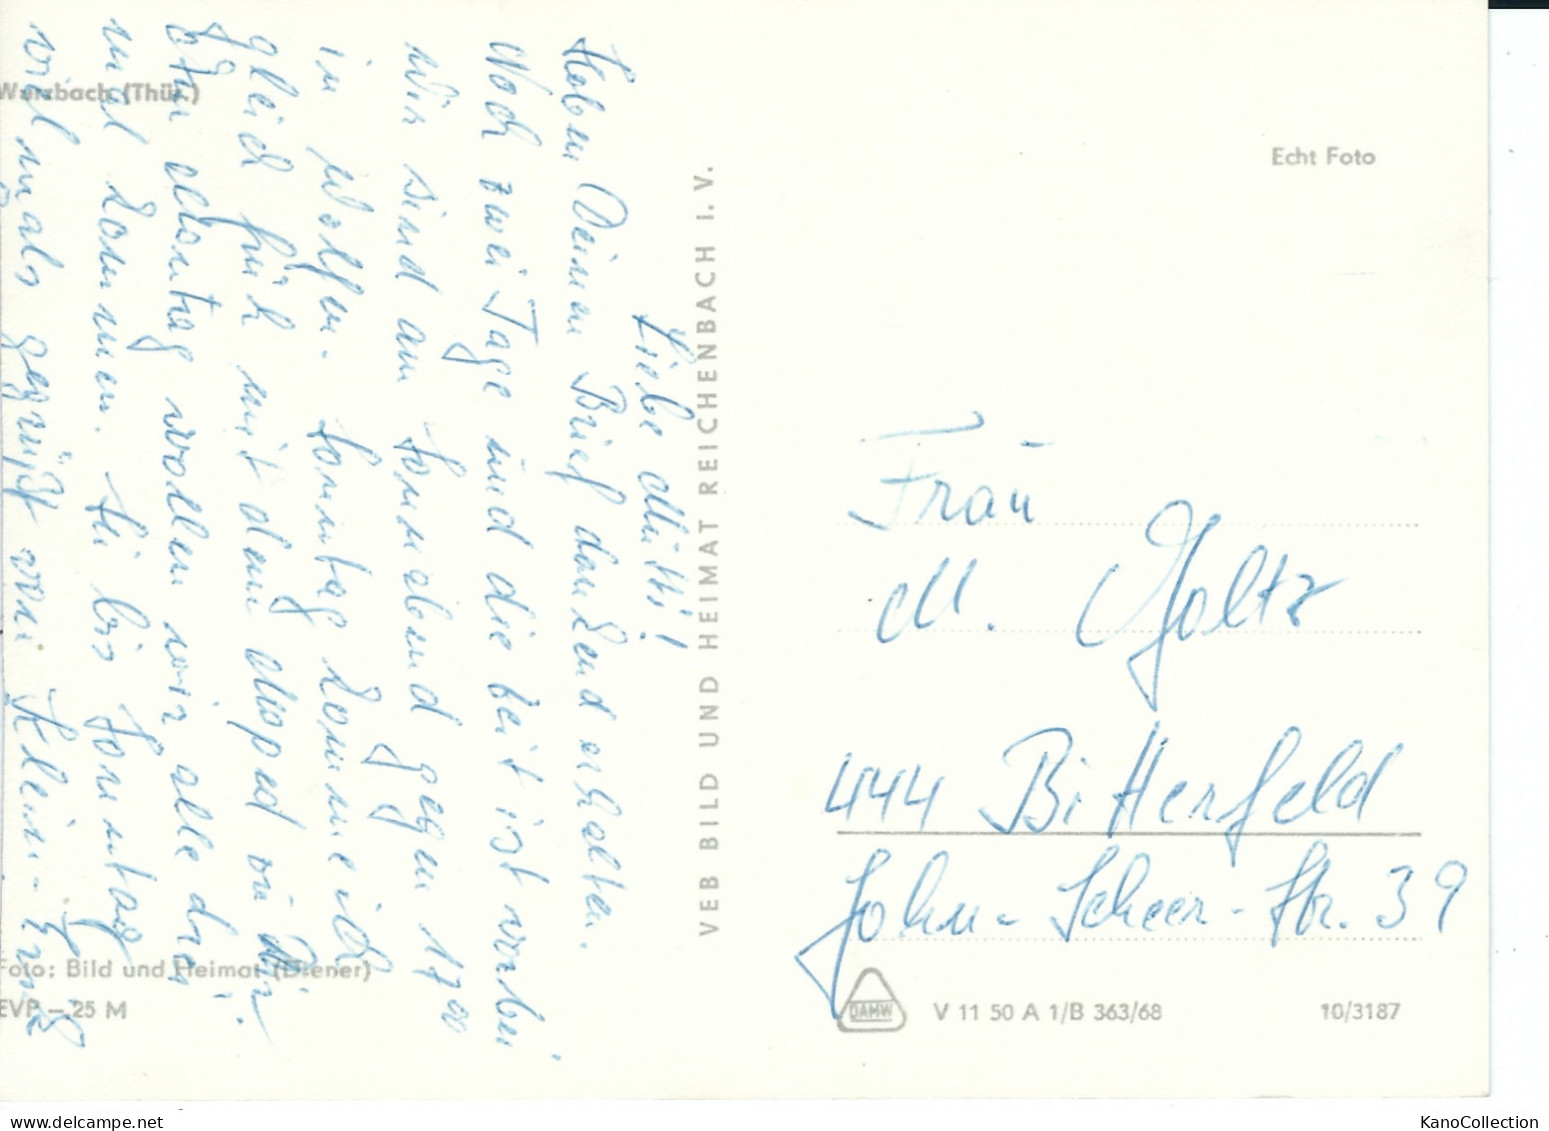 Wurzbach (Thür.)
Echt Foto
Liebe Mutti!
Haben Deinen Brief dankend erhalten.
Noch zwei Tage und die Zeit ist vorbei.
Wir sind am Sonnabend gegen 17⁰⁰
in Wolfen. Sonntag komme ich
gleich früh mit dem Moped zu Dir.
Am Montag wollen wir alle drei
mal kommen. Sei bis Sonntag
vielmals gegrüßt von Klein-
VEB BILD UND HEIMAT REICHENBACH I. V.
Frau
M. Goltz
444 Bitterfeld
John-Scheer-Str. 39
Foto: Bild und Heimat (Diener)
EVP –.25 M
DAMW
V 11 50 A 1/B 363/68
10/3187
KanoCollection